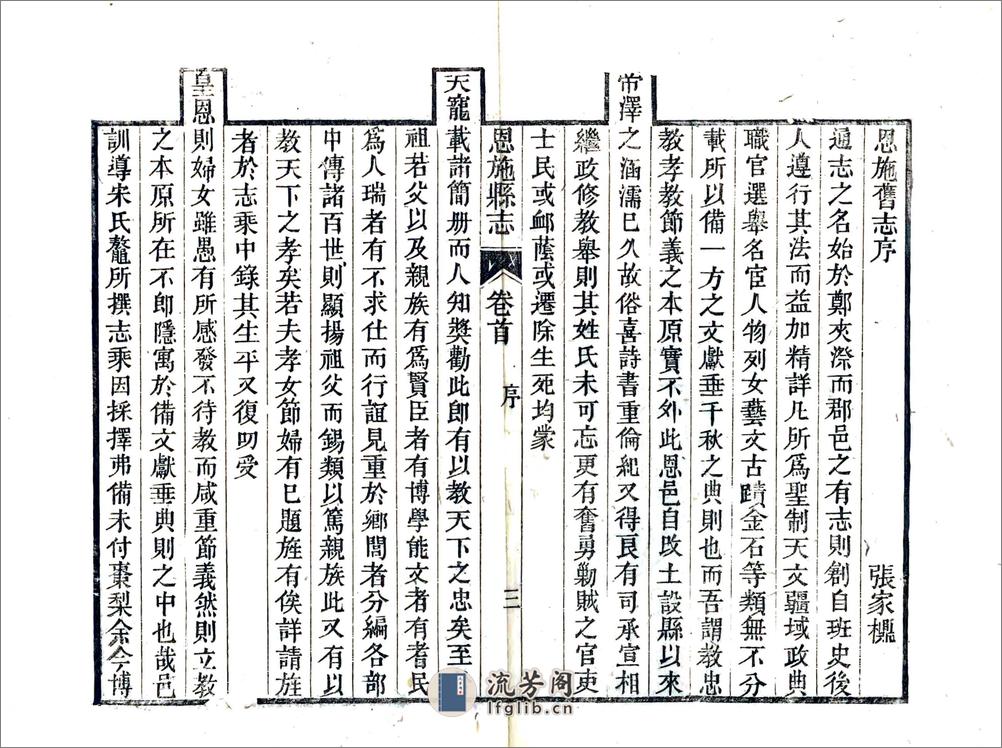 恩施舊志序　張家檙
通志之名始於鄭夾漈而郡邑之有志則創自班史後
人遵行其法而益加精詳凡所爲聖制天文疆域政典
職官選舉名宦人物列女藝文古蹟金石等類無不分
載所以備一方之文獻垂千秋之典則也而吾謂教忠
教孝教節義之本原實不外此恩邑自改土設縣以來
帝澤之涵濡已久故俗喜詩書重倫紀又得良有司承宣相
繼政修教舉則其姓氏未可忘更有奮勇勦賊之官吏
士民或卹蔭或遷除生死均蒙
恩施縣志　卷首　序　三
天寵載諸簡册而人知奬勸此卽有以教天下之忠矣至
祖若父以及親族有爲賢臣者有博學能文者有耆民
爲人瑞者有不求仕而行誼見重於鄉閭者分編各部
中傳諸百世則顯揚祖父而錫類以篤親族此又有以
教天下之孝矣若夫孝女節婦有已題旌有俟詳請旌
者於志乘中錄其生平又復叨受
皇恩則婦女雖愚有所感發不待教而咸重節義然則立教
之本原所在不卽隱寓於備文獻垂典則之中也哉邑
訓導朱氏鼇所撰志乘因採擇弗備未付棗梨余今博
流芳阁
lfglib.cn